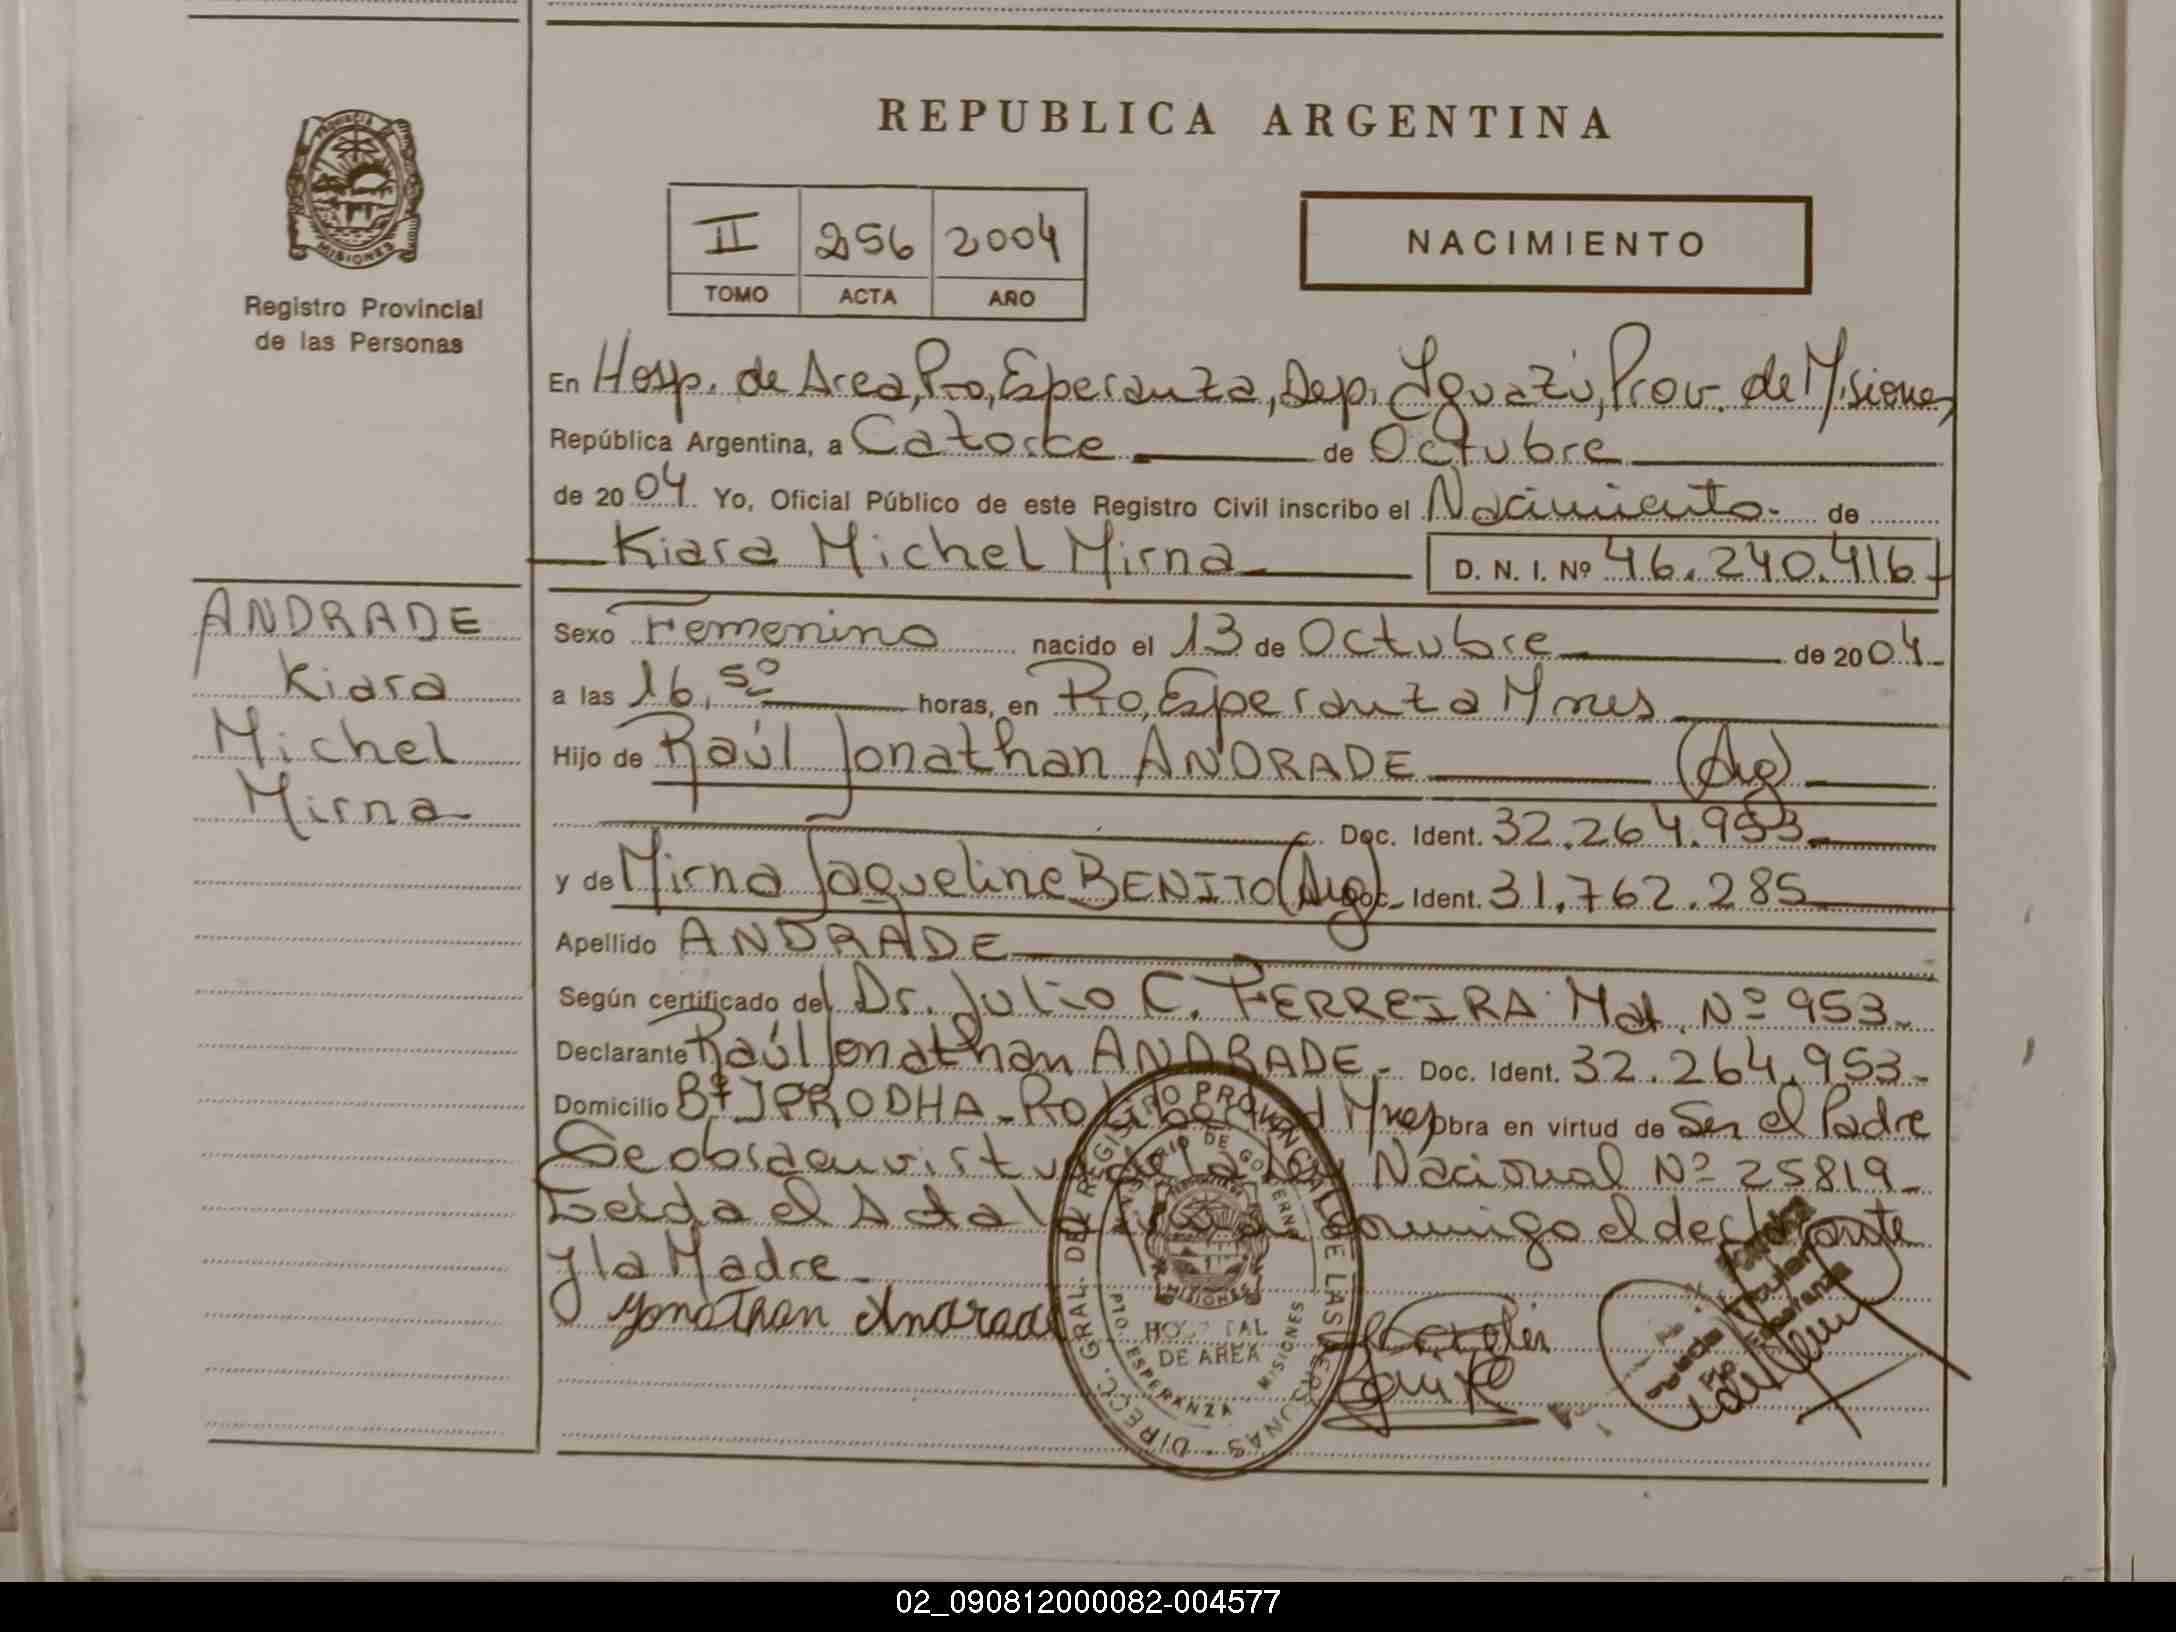 REPUBLICA ARGENTINA
PROVINCIA DE
MISIONES
Registro Provincial
de las Personas
II 256 2004
TOMO ACTA AÑO
NACIMIENTO
En Hosp. de Area, Pto, Esperanza, Dep. Iguazú, Prov. de Misiones
República Argentina, a Catorce de Octubre
de 2004 Yo, Oficial Público de este Registro Civil inscribo el Nacimiento- de
Kiara Michel Mirna D. N. I. Nº 46.240.416
ANDRADE
Kiara
Michel
Mirna
Sexo Femenino nacido el 13 de Octubre de 2004-
a las 16,50 horas, en Pto, Esperanza Mnes
Hijo de Raúl Jonathan ANDRADE (Arg)
Doc. Ident. 32.264.953-
y de Mirna Jaqueline BENITO (Arg) Doc. Ident. 31.762.285
Apellido ANDRADE
Según certificado del Dr. Julio C. FERREIRA Mat. Nº 953-
Declarante Raúl Jonathan ANDRADE.- Doc. Ident. 32.264.953-
Domicilio Bº IPRODHA-Pto Mnes Obra en virtud de Ser el Padre
Se obra en virtud de la Ley Nacional Nº 25819-
Leida el Acta la conmigo el declarante
y la Madre-
Yonathan Andrade
DIRECC. GRAL. DEL REGISTRO PROVINCIAL DE LAS PERSONAS
MINISTERIO DE GOBIERNO
MISIONES
HOSPITAL
DE AREA
PTO. ESPERANZA MISIONES
02_090812000082-004577